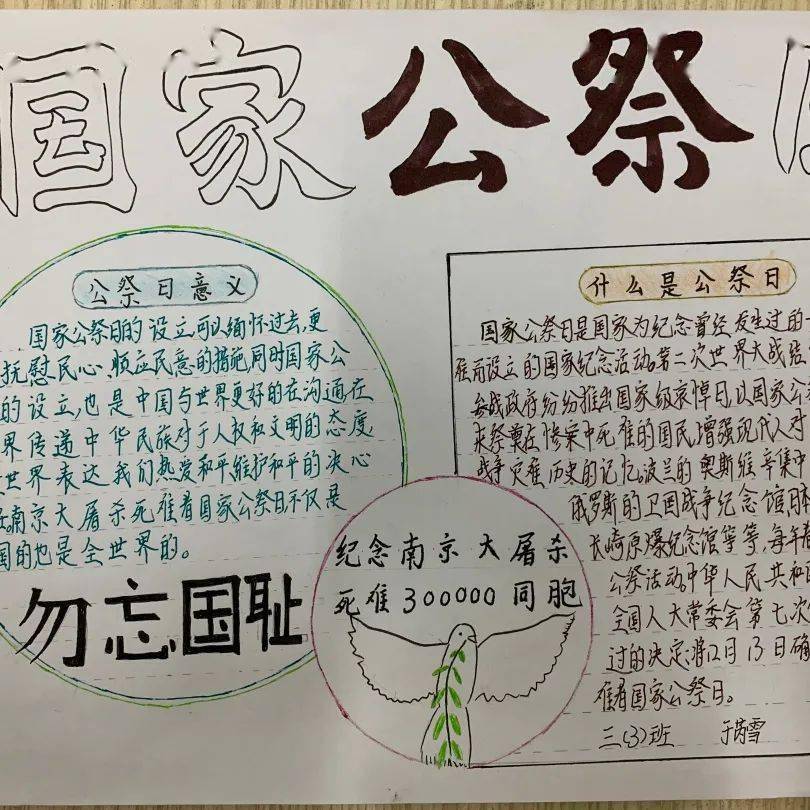 国家公祭
公祭日意义
国家公祭日的设立,可以缅怀过去,更
抚慰民心、顺应民意的措施,同时国家公
的设立,也是中国与世界更好的在沟通,在
界传递中华民族对于人权和文明的态度,
世界表达我们热爱和平维护和平的决心
南京大屠杀死难者国家公祭日不仅是
国的也是全世界的。
勿忘国耻
纪念南京大屠杀
死难300000同胞
什么是公祭日
国家公祭日是国家为纪念曾经发生过的
难而设立的国家纪念活动。第二次世界大战结
参战政府纷纷推出国家级哀悼日,以国家公
来祭奠在惨案中死难的国民,增强现代人对
战争灾难历史的记忆。波兰的奥斯维辛集中
俄罗斯的卫国战争纪念馆,
长崎原爆纪念馆等等,每年
公祭活动。中华人民共和
全国人大常委会第七次
过的决定:将12月13日确
难者国家公祭日。
三(3)班 于芮雪